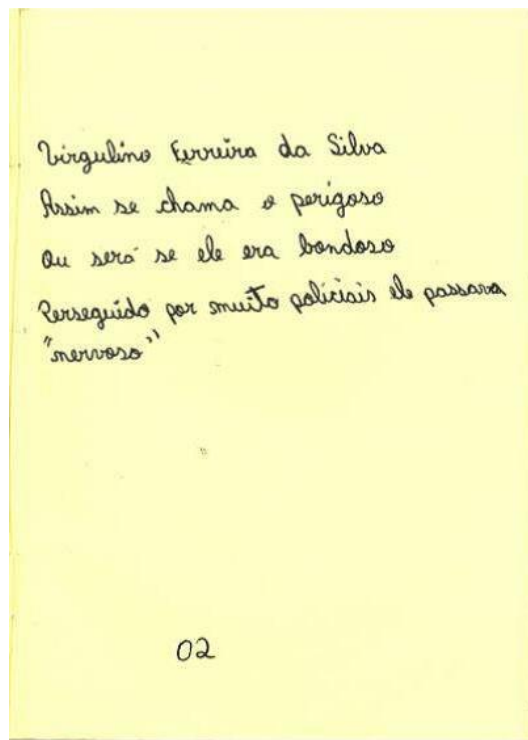 Virgulino Ferreira da Silva
Assim se chama o perigoso
Ou será se ele era bondoso
Perseguido por muito policiais ele passava
"nervoso"
02